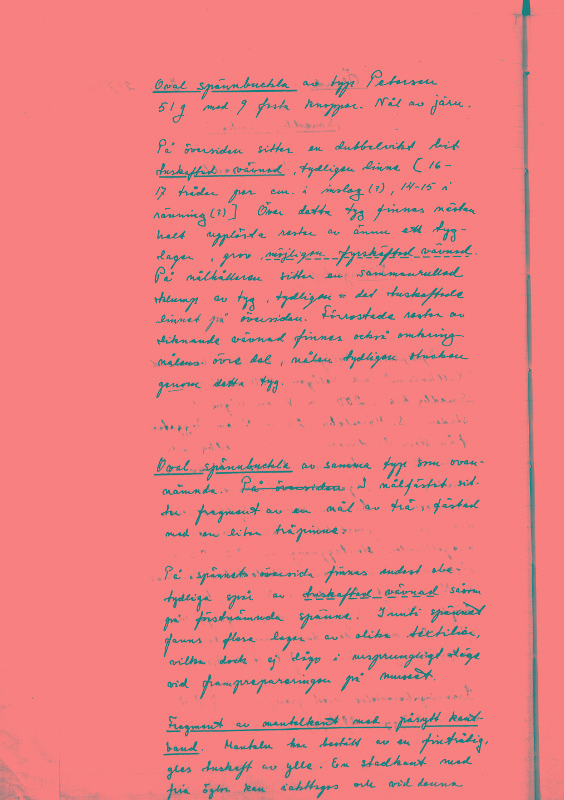 Oval spännbuckla av typ Petersen
51g med 9 fasta knoppar. Nål av järn.
På översidan sitter en dubbelvikt bit
tuskaftad vävnad, tydligen linne (16-
17 trådar per cm. i inslag (?), 14-15 i
ränning (?)] Över detta tyg finnas nästan
helt upplösta rester av ännu ett tyg-
lager, grov, möjligen fyrskäftad vävnad.
På nålhållaren sitter en sammanrullad
klump av tyg, tydligen = det tuskaftade
linnet på översidan. Förrostade rester av
liknande vävnad finnas också omkring
nålens övre del, nålen tydligen stucken
genom detta tyg.
Oval spännbuckla av samma typ som ovan-
nämnda. På översidan I nålfästet sit-
ter fragment av en nål av trä, fästad
med en liten träpinne.
På spännets översida finnas endast obe-
tydliga spår av tuskaftad vävnad såsom
på förstnämnda spänne. Inuti spännet
fanns flera lager av olika textilier,
vilka dock ej lågo i ursprungligt läge
vid framprepareringen på museet.
Fragment av mantelkant med påsytt kant-
band. Manteln har bestått av en fintrådig,
gles tuskaft av ylle. En stadkant med
fria öglor kan iakttagas och vid denna